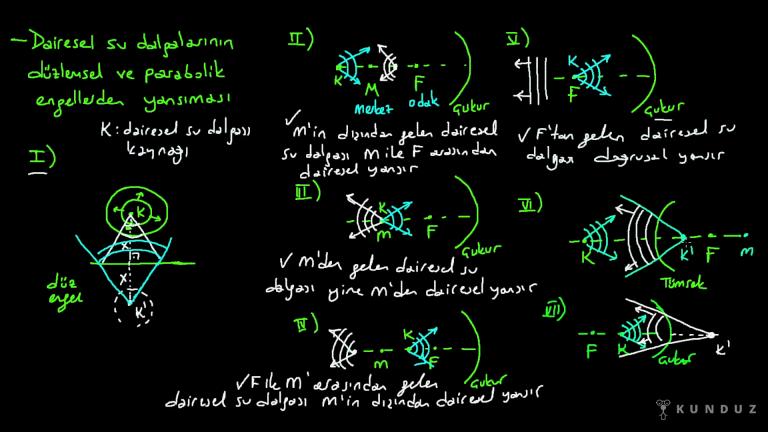 - Dairesel su dalgalarının
düzlemsel ve parabolik
engellerden yansıması
K: dairesel su dalgası
kaynağı
I)
K
x
x
K'
düz
engel
II)
K
M
F
merkez odak
Çukur
✓ M'in dışından gelen dairesel
su dalgası M ile F arasından
dairesel yansır
III)
K
M
F
Çukur
✓ M'den gelen dairesel su
dalgası yine M'den dairesel yansır
IV)
M
K
F
Çukur
✓ F ile M arasından gelen
dairesel su dalgası M'in dışından dairesel yansır
V)
K
F
Çukur
✓ F'tan gelen dairesel su
dalgası doğrusal yansır
VI)
K
K'
F
M
Tümsek
VII)
F
K
K'
Çukur
KUNDUZ